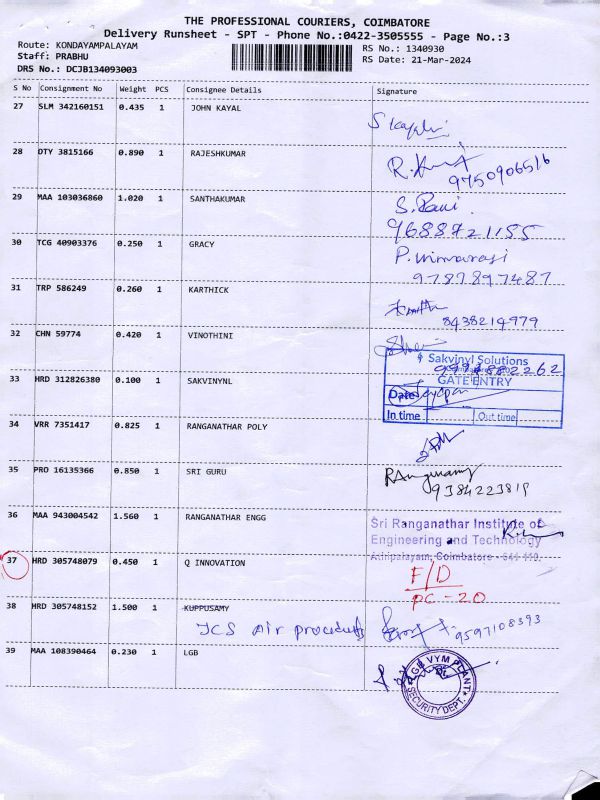 THE PROFESSIONAL COURIERS, COIMBATORE
Delivery Runsheet - SPT - Phone No.:0422-3505555 - Page No.:3
Route: KONDAYAMPALAYAM
RS No.: 1340930
Staff: PRABHU
RS Date: 21-Mar-2024
DRS No.: DCJB134093003
S No Consignment No Weight PCS Consignee Details Signature
27 SLM 342160151 0.435 1 JOHN KAYAL
28 DTY 3815166 0.890 1 RAJESHKUMAR
9750906516
29 MAA 103036860 1.020 1 SANTHAKUMAR S. Rani
9688721155
30 TCG 40903376 0.250 1 GRACY P.
9787897487
31 TRP 586249 0.260 1 KARTHICK
8438214979
32 CHN 59774 0.420 1 VINOTHINI
Sakvinyl Solutions
33 HRD 312826380 0.100 1 SAKVINYNL GATE ENTRY
Date
In time Out time
34 VRR 7351417 0.825 1 RANGANATHAR POLY
35 PRO 16135366 0.850 1 SRI GURU
9384223819
36 MAA 943004542 1.560 1 RANGANATHAR ENGG Sri Ranganathar Institute of
Engineering and Technology
Athipalayam, Coimbatore - 641 110.
37 HRD 305748079 0.450 1 Q INNOVATION F/D
PC - 20
38 HRD 305748152 1.500 1 KUPPUSAMY
JCS Air products 9597108393
39 MAA 108390464 0.230 1 LGB
VYM PLANT
SECURITY DEPT.